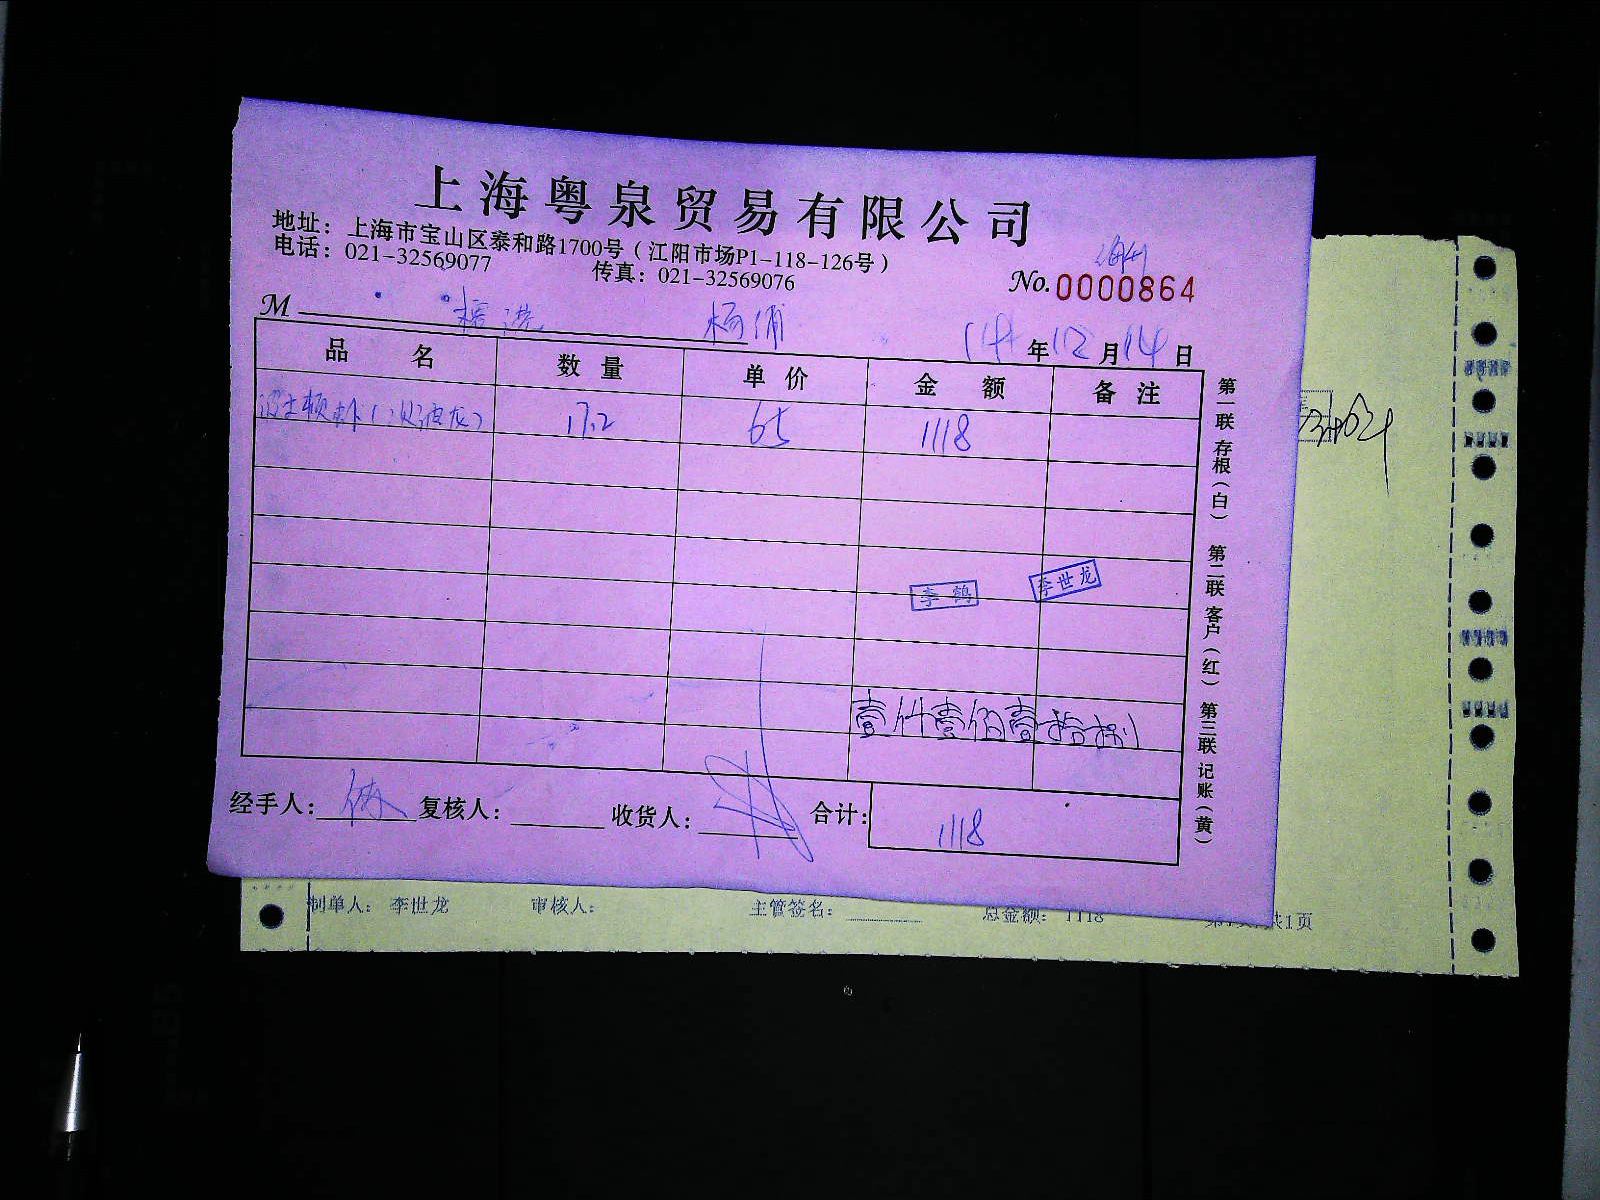 上海粤泉贸易有限公司
地址：上海市宝山区泰和路1700号（江阳市场P1-118-126号）
电话：021-32569077 传真：021-32569076
No.0000864
M 杨浦
14年12月14日
品名 数量 单价 金额 备注
波士顿 17.2 65 1118
李鹤 李世龙
壹仟壹佰壹拾捌
经手人： 复核人： 收货人： 合计：1118
第一联存根（白） 第二联客户（红） 第三联记账（黄）
制单人：李世龙 审核人： 主管签名： 总金额：1118 共1页